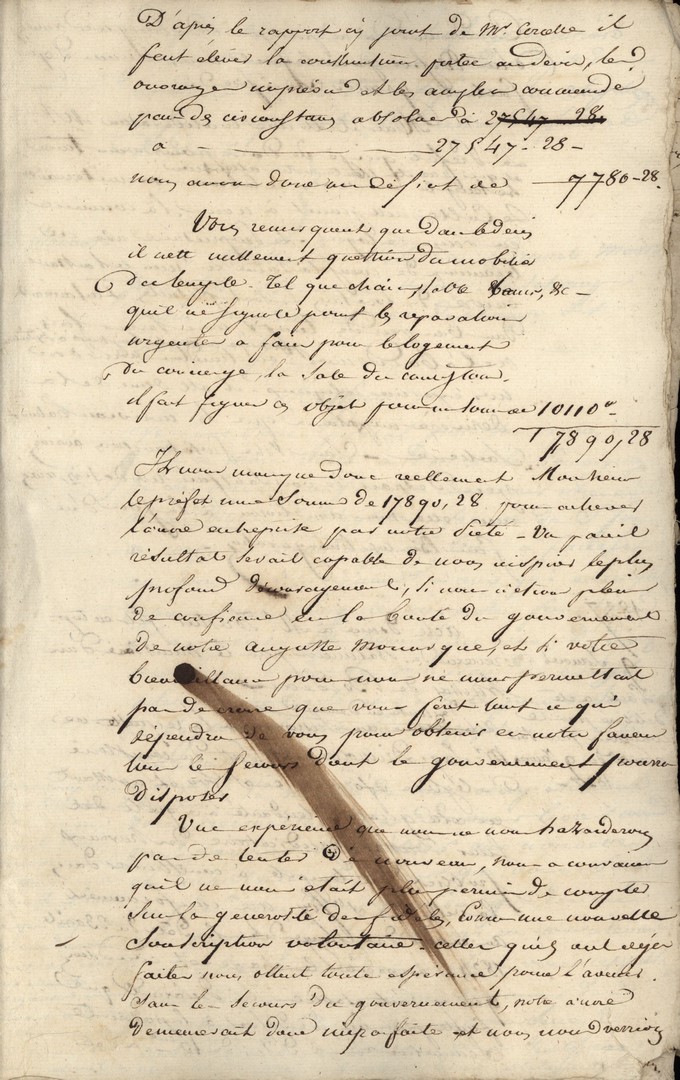 D'après le rapport ci joint de Mr. il
faut élever la construction portée au devis, les
ouvrages imprévus et les amplia commandé
par des circonstances absolues à 27547 - 28.
a - 27547 - 28 -
nous avons donc un déficit de 7780 - 28.
Vous remarquerez que dans le devis
il n'est nullement question du mobilier
du temple. Tel que chaires, table bancs, &c -
qu'il ne signale point les réparations
urgentes a faire pour le logement
du concierge, la Sale du consistoire.
il faut figurer ces objets pour une somme de 10110 -
17890,28
Il nous manque donc reellement Monsieur
le préfet une Somme de 17890,28 pour achever
l'œuvre entreprise par notre piété - Un pareil
résultat serait capable de nous inspirer le plus
profond découragement, Si nous n'etions pleins
de confiance en la bonté du gouvernement
de notre auguste monarque, et si votre
bienveillance pour nous ne nous permettait
pas de croire que vous ferez tout ce qui
dépendra de vous pour obtenir en notre faveur
tous les Secours dont le gouvernement pourra
disposer
Une expérience que nous ne nous hazarderons
pas de tenter de nouveau, nous a convaincu
qu'il ne nous était plus permis de compter
Sur la generosité des fidèles, Comme une nouvelle
Souscription volontaire. celles qu'ils ont déja
faites nous ôtent toute espérance pour l'avenir.
Sans les Secours du gouvernement, notre œuvre
demeurerait donc imparfaite et nous nous verrions